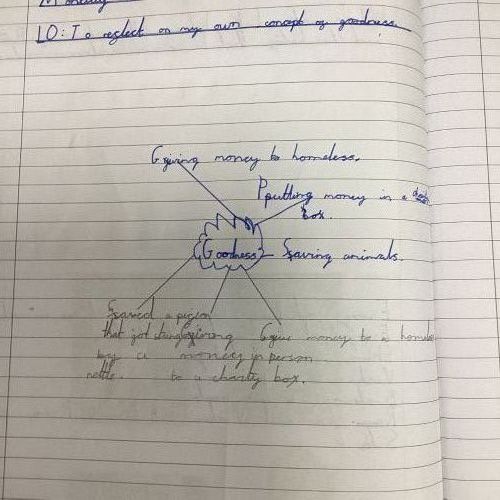 Monday
LO: To reflect on my own concept of goodness.
Ggiving money to homeless.
Pputting money in a
box.
Goodness
Ssaving animals.
Ssaved a pigeon
that got stung
by a
nettle.
Ggiving
money in person
to a charity box.
Ggive money to a homeless